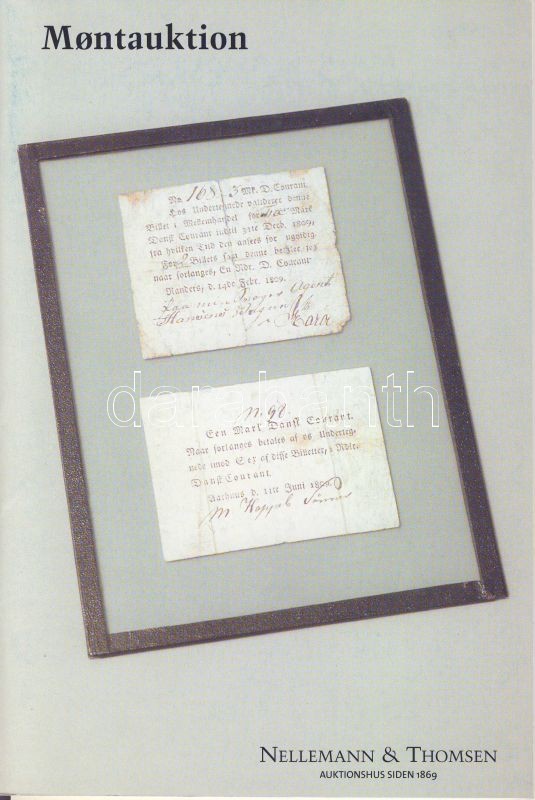 Møntauktion
No. 168. 3 Mk. D. Courant.
Hos Undertegnede validerer denne
Billet i Mellemhandel for Tre Mark
Dansk Courant indtil 31te Decb. 1809,
fra hvilken Tid den ansees for ugyldig.
For 2 Billets som denne betales, 
naar forlanges, En Rdr. D. Courant
Randers, d. 14de Febr. 1809.
Agent
darabanth
N. 92.
Een Mark Dansk Courant.
Naar forlanges betales af os Underteg,
nede imod Sex af disse Billetter, 1 Rdlr.
Dansk Courant.
Aarhuus, d. 11te Juni 1809.
NELLEMANN & THOMSEN
AUKTIONSHUS SIDEN 1869